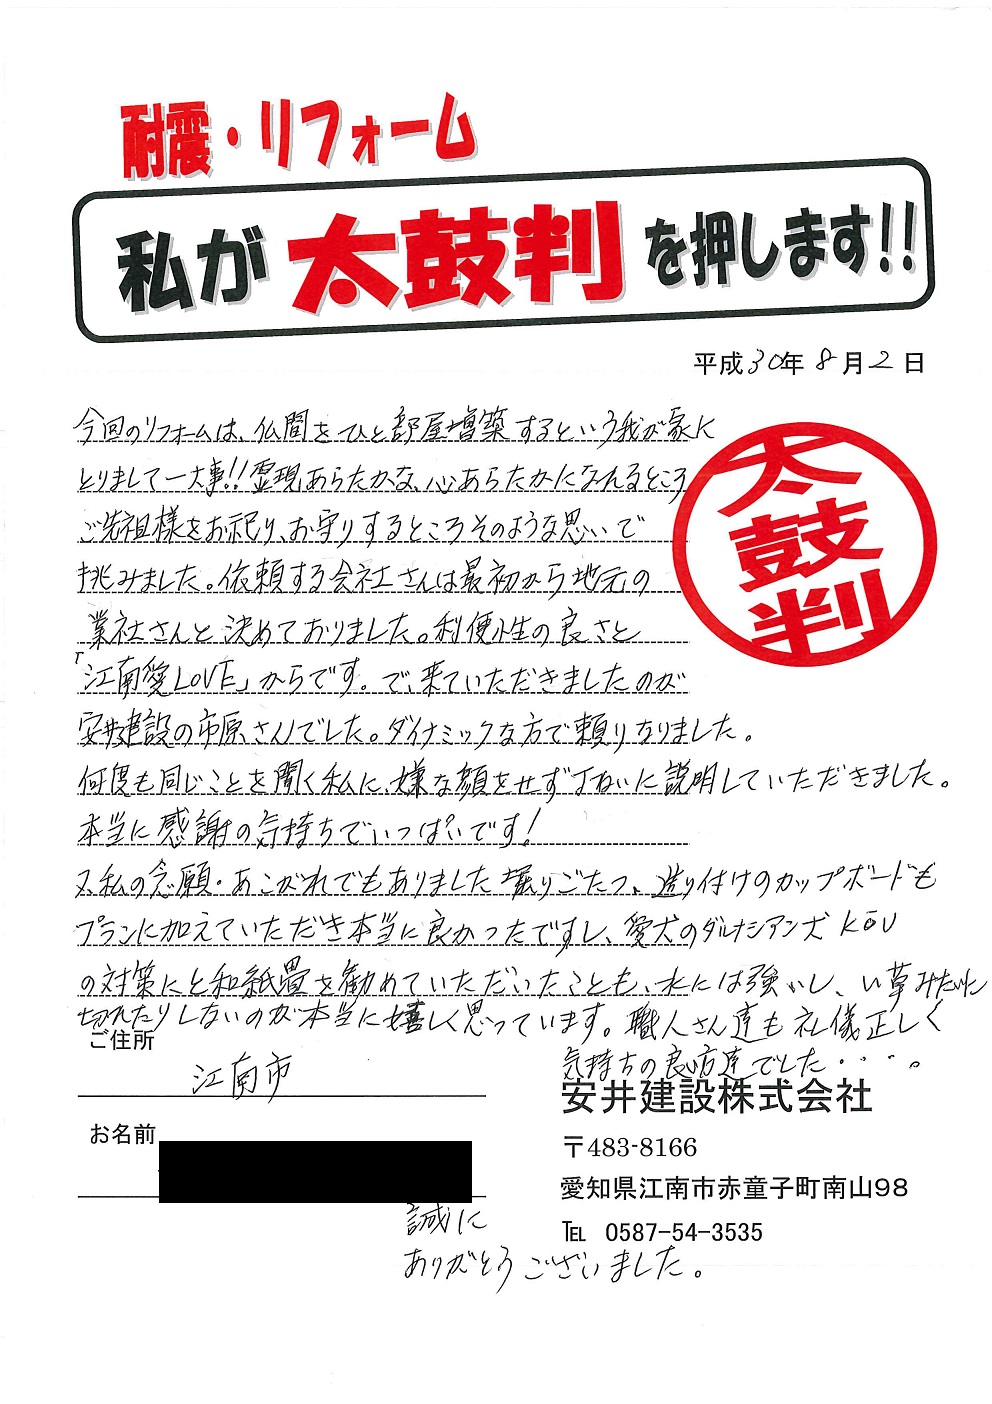 耐震・リフォーム
私が太鼓判を押します!!
平成30年8月2日
今回のリフォームは、仏間をひと部屋増築するという我が家に
とりまして一大事!!霊現あらたかな、心あらたかになれるところ
ご先祖様をお祀り、お守りするところそのような思いで
挑みました。依頼する会社さんは最初から地元の
業社さんと決めておりました。利便性の良さと
「江南愛LOVE」からです。で、来ていただきましたのが
安井建設の市原さんでした。ダイナミックな方で頼りなりました。
何度も同じことを聞く私に、嫌な顔をせず丁ねいに説明していただきました。
本当に感謝の気持ちでいっぱいです!
又私の念願・あこがれでもありました堀りごたつ、造り付けのカップボードも
プランに加えていただき本当に良かったですし、愛犬のダルメシアン犬KōU
の対策にと和紙畳を勧めていただいたことも、水には強いし、い草みたいに
切れたりしないのが本当に嬉しく思っています。職人さん達も礼儀正しく
気持ちの良い方達でした・・・・。
太鼓判
ご住所
江南市
お名前
安井建設株式会社
〒483-8166
愛知県江南市赤童子町南山98
℡ 0587-54-3535
誠に
ありがとうございました。